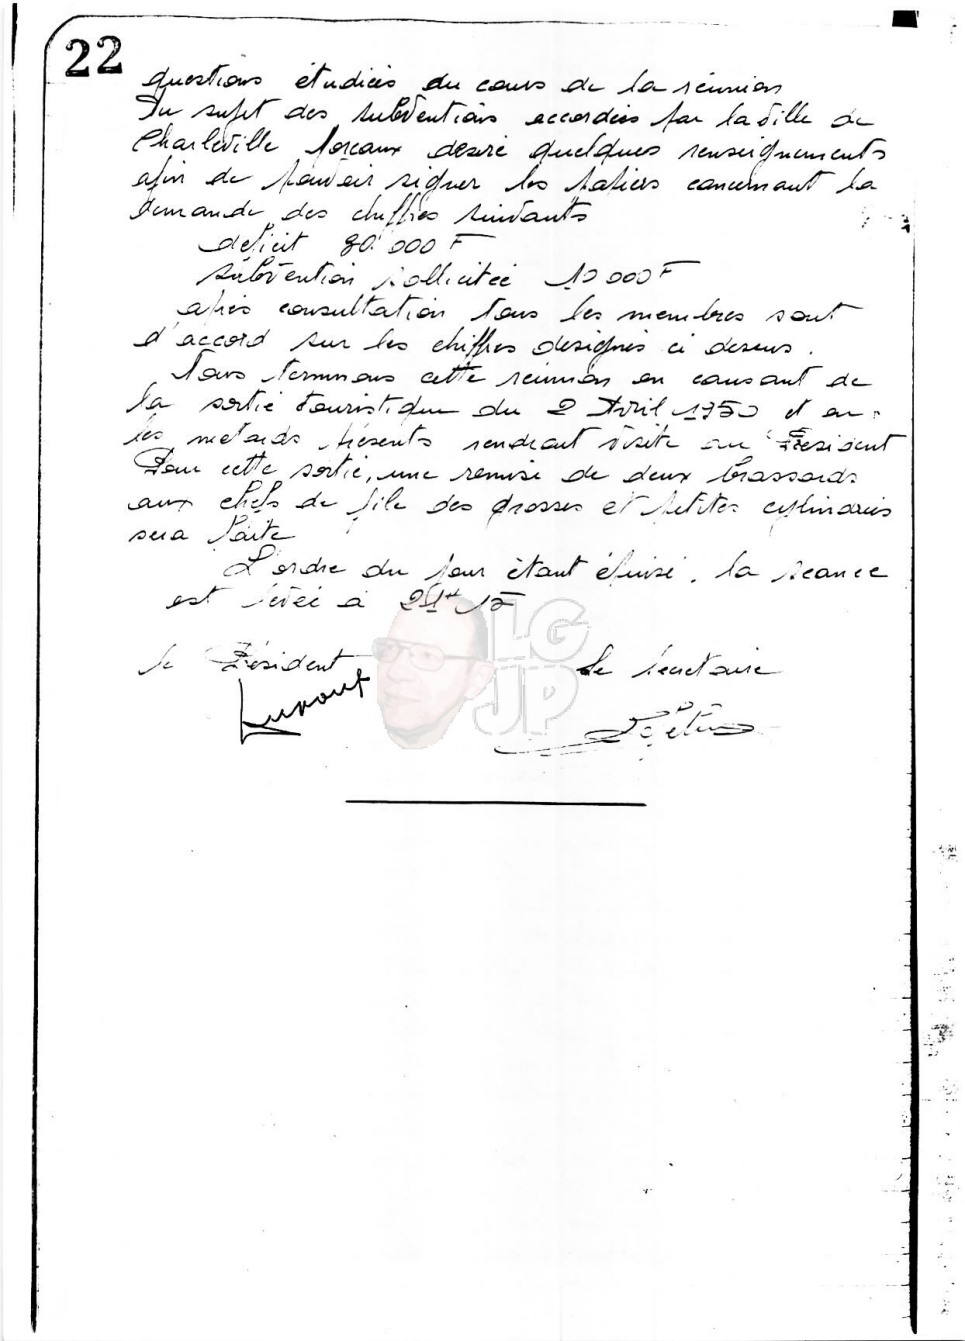 22
questions étudiées au cours de la réunion
Au sujet des subventions accordées par la ville de
Charleville desire quelques renseignements
afin de pouvoir signer les papiers concernant la
demande des chiffres suivants
deficit 80.000 F
subvention sollicitée 10 000 F
après consultation tous les membres sont
d'accord sur les chiffres designés ci dessus.
Nous terminons cette reunion en causant de
la sortie touristique du 2 Avril 1950 et ou
les motards présents rendront visite au President
Pour cette sortie, une remise de deux brassards
aux chefs de file des grosses et petites cylindrées
sera faite
L'ordre du jour étant épuisé, la séance
est levée à 15
LG
JP
le Président
Le Secrétaire